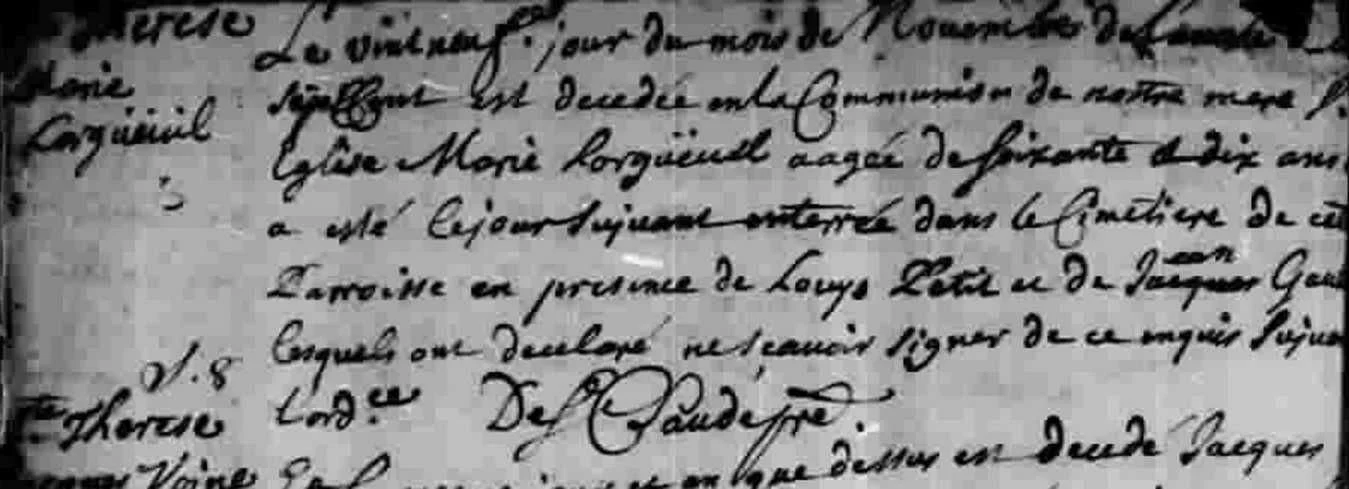 Therese
Marie
Lorgüeüil
S. 8
Ste Therese
Le vintneuf. jour du mois de Nouembre de Lannee
sept Cent est decedée en la Communion de nostre mere S.
Eglise Marie Lorgüeüel aagée de soixante et dix ans
a esté le jour suyuant enterrée dans le Cimetiere de cet
Parroisse en presence de Louys Petit et de Jacques Jean
lesquels ont declaré ne scauoir signer de ce enquis suyua
lord.ce De la Faudespre.
que dessus est decedé Jacques